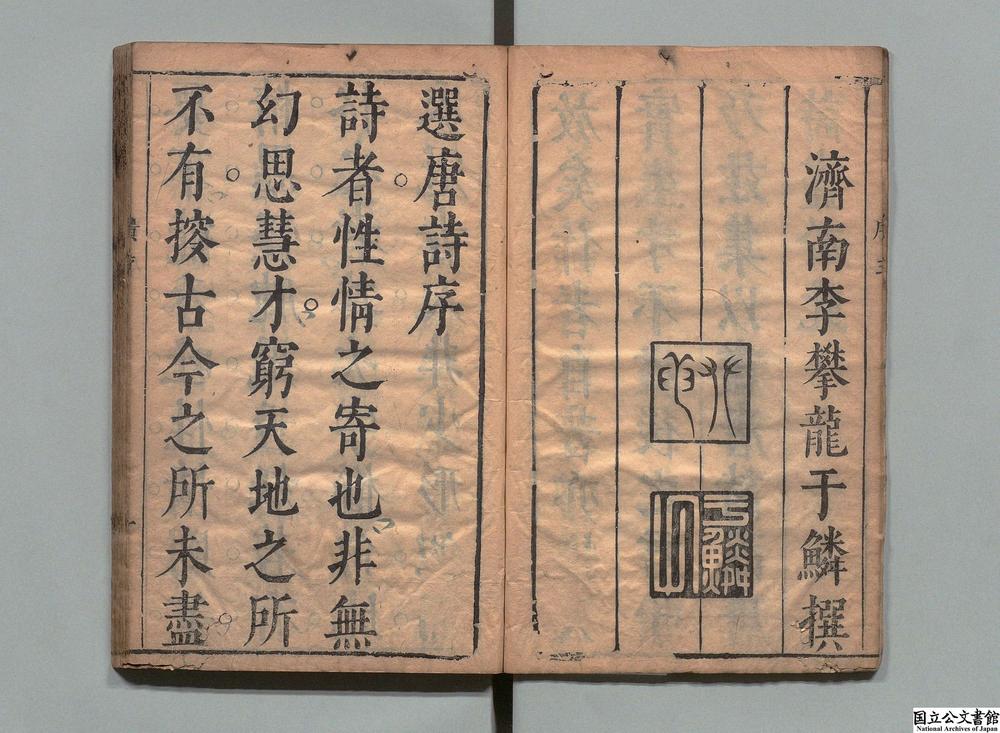 濟南李攀龍于鱗撰
于鱗
選唐詩序
詩者性情之寄也非無
幻思慧才窮天地之所
不有搜古今之所未盡
国立公文書館
National Archives of Japan